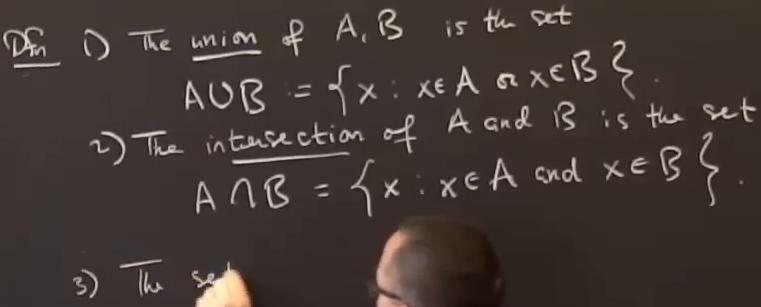 Dfn 1) The union of A, B is the set
A∪B = {x : x∈A or x∈B}.
2) The intersection of A and B is the set
A∩B = {x : x∈A and x∈B}.
3) The set